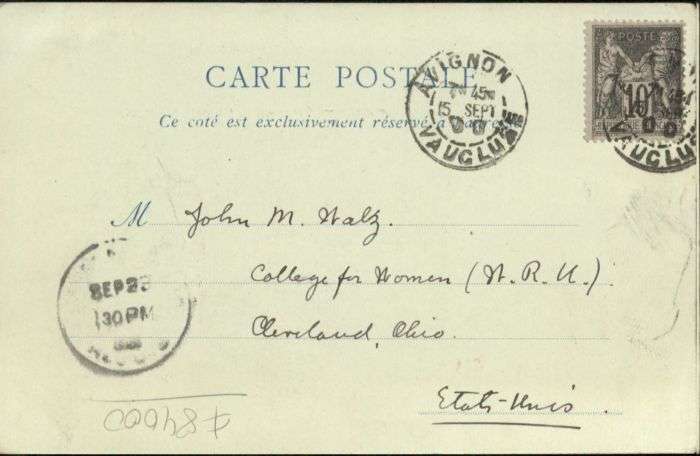 POSTE
10
CARTE POSTALE
Ce coté est exclusivement réservé à
AVIGNON
45
15 SEPT
00
VAUCLUSE
VAUCLU
M John M. Walz.
College for Women (W. R. U.)
Cleveland, Ohio.
Etats-Unis.
SEP 2
30 PM
784000